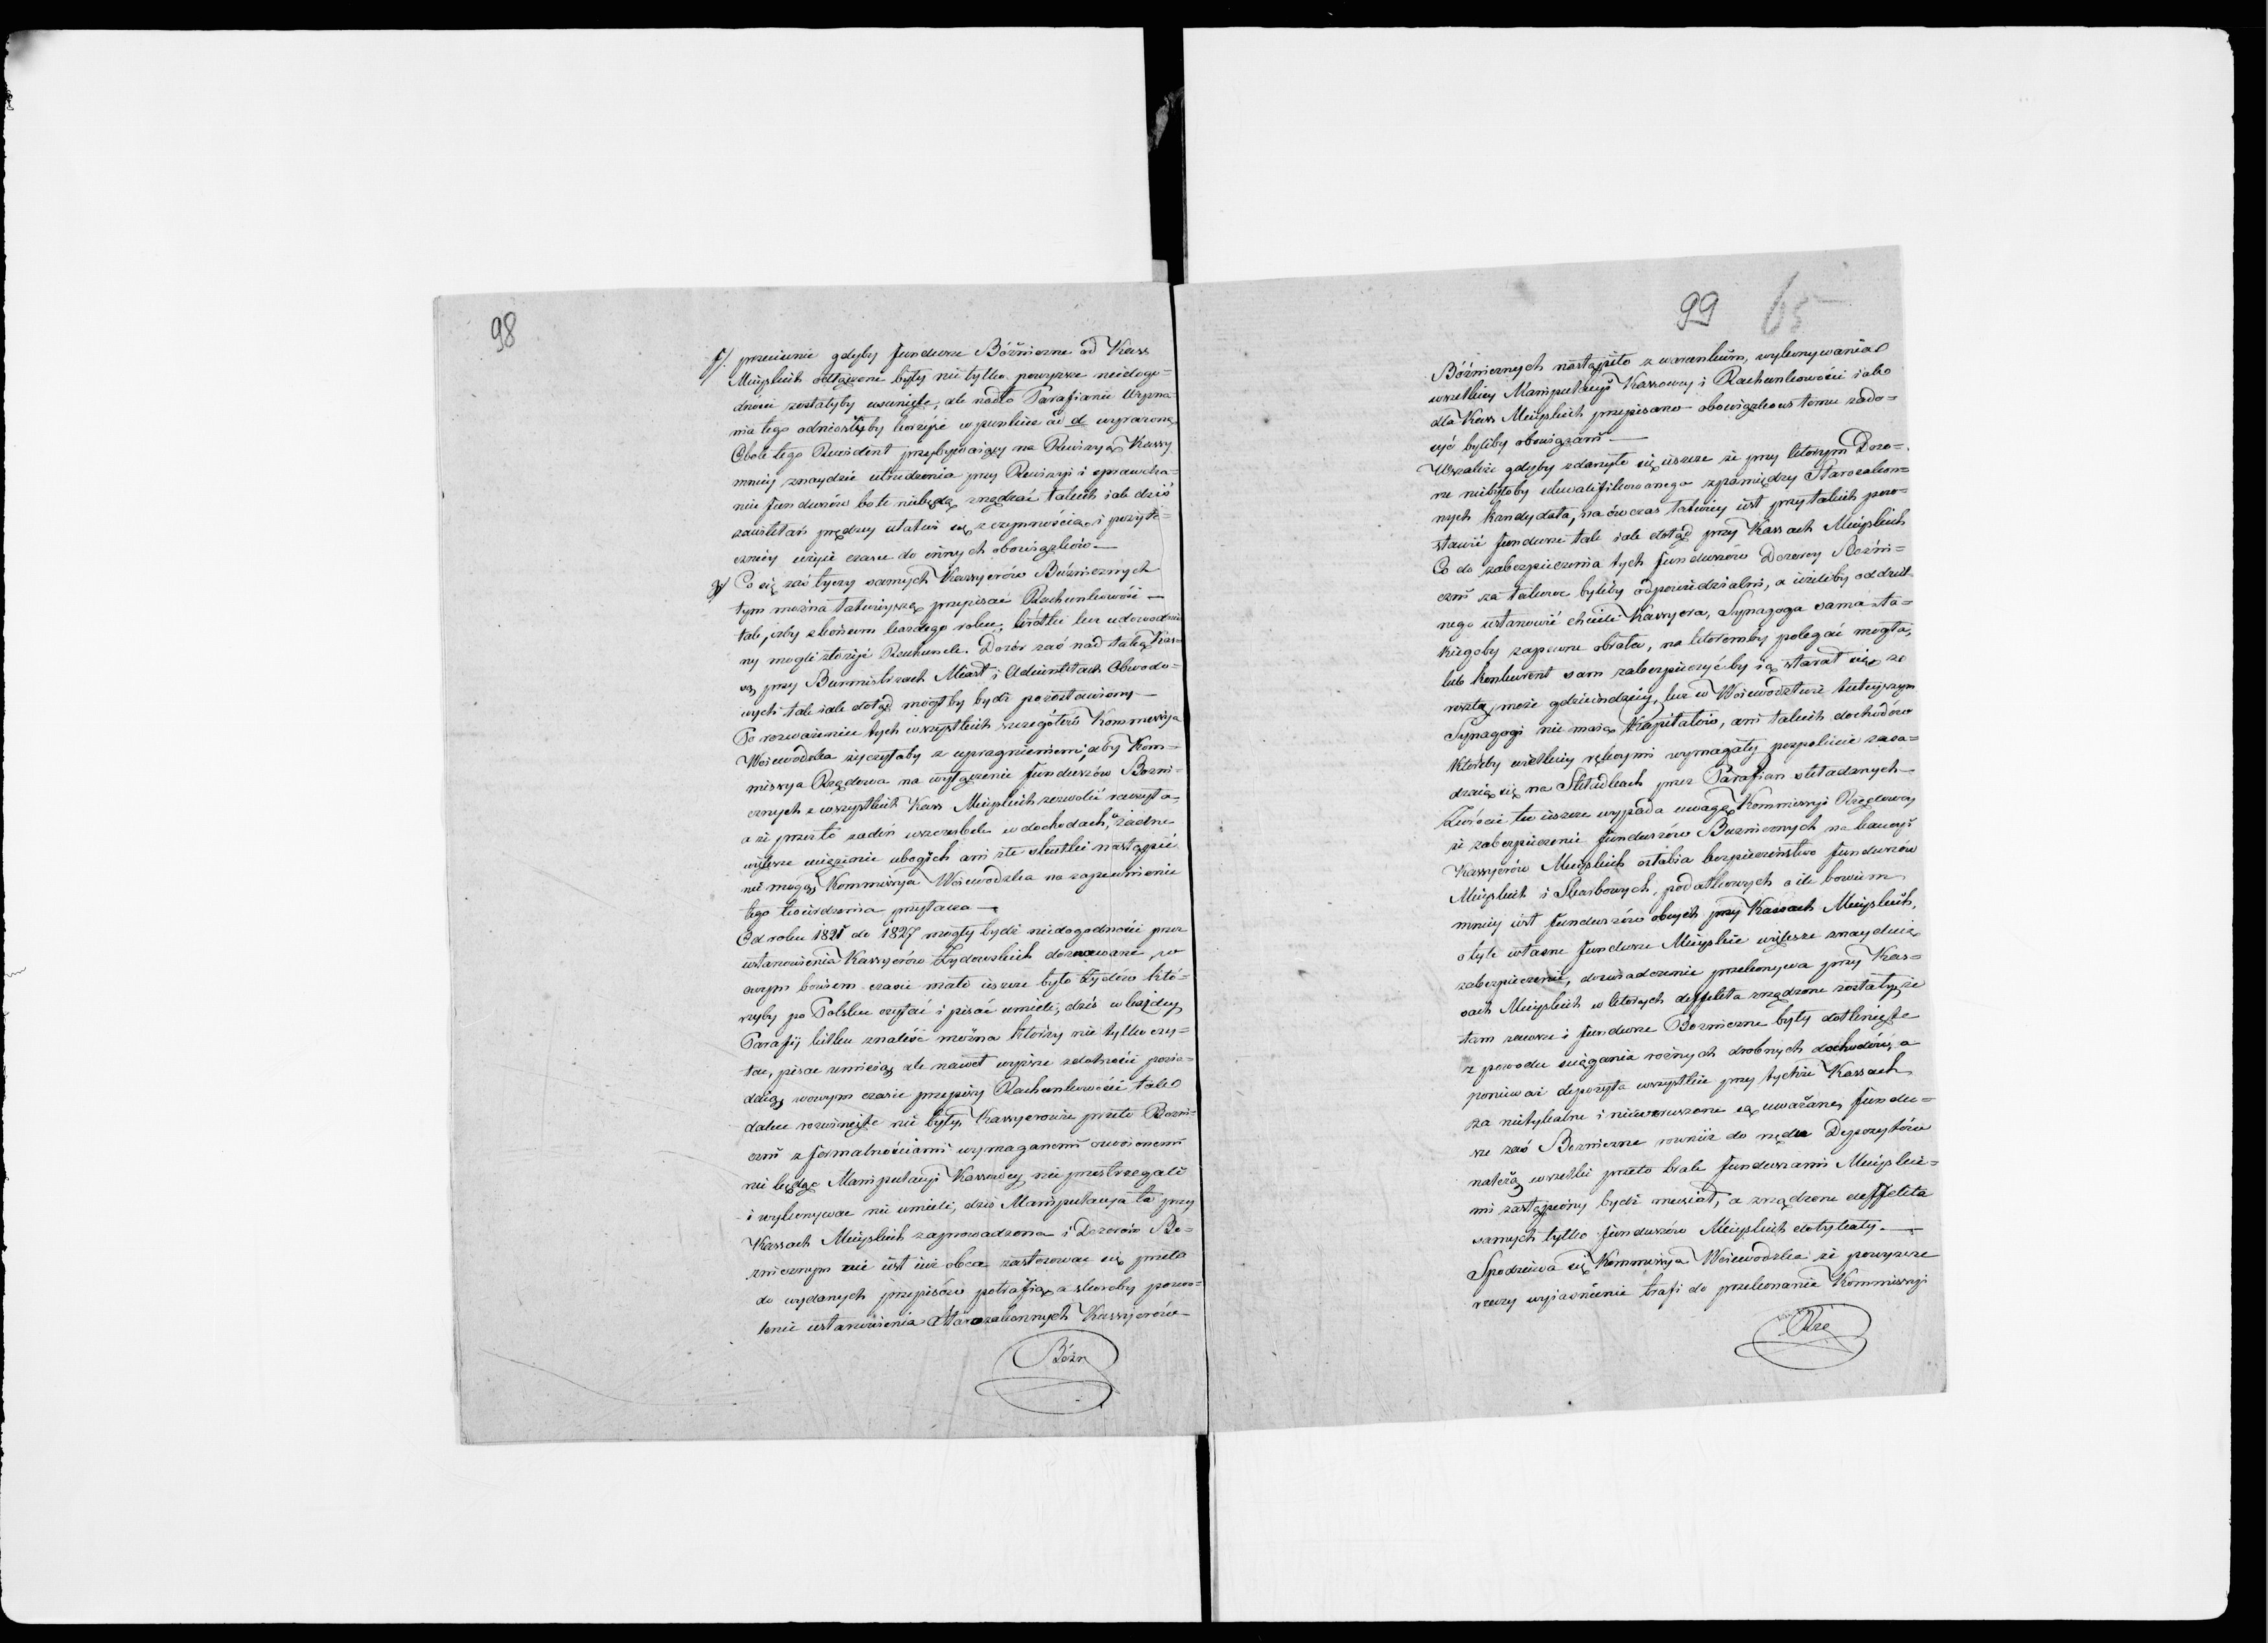 98
f/. przeciwnie gdyby fundusze Bóżnicze od Kass
Mieyskich odłączone były nie tylko powyższe niedogo=
dności zostałyby usunięte, ale nadto Parafianie Wyzna=
nia tego odnieśliby korzyść w punkcie ad d wyrażoną
Obok tego Rewident przybywaiący na Rewizyą Kassy
mniey znaydzie utrudzenia przy Rewizyi i sprawdza=
niu funduszów bo te nie będą zrządzać takich iak dziś
zawikłań prędzey ułatwi się z czynnością i pożyte=
czniey użyie czasu do innych obowiązków —
g/ Co się zaś tyczy samych Kassyerów Bóżniczych
tym można łatwieyszą przepisać Rachunkowość —
tak, iżby z końcem każdego roku, krótki lecz udowodnio
ny mogli złożyć Rachunek. Dozór zaś nad taką Kas=
są przy Burmistrzach Miast i Adiunktach Obwodo=
wych tak iak dotąd mógłby bydź pozostawiony —
Po rozważeniu tych wszystkich szczegółów Kommissya
Woiewódzka życzyłaby z upragnieniem, aby Kom=
missya Rządowa na wyłączenie funduszów Bozni=
cznych z wszystkich Kass Mieyskich zezwolić raczyła,
a że przez to żaden uszczerbek w dochodach, żadne
większe uciążenie ubogich ani złe skutki nastąpić
nie mogą Kommissya Woiewódzka na zapewnienie
tego twierdzenia przytacza —
Od roku 1821 do 1827 mogły bydź niedogodności przez
ustanowienia Kassyerów Żydowskich doznawane, w
owym bowiem czasie mało ieszcze było Żydów któ=
rzyby po Polsku czytać i pisać umieli, dziś w każdey
Parafij kilku znaleść można którzy nie tylko czy=
tać, pisać umieią, ale nawet wyższe zdatności posia=
daią, w owym czasie przepisy Rachunkowości tak
dalece rozwinięte nie były, Kassyerowie przeto Bozni=
czni z formalnościami wymaganemi oswoionemi
nie będąc Manipulacyi Kassowey nie przestrzegali
i wykonywać nie umieli, dziś Manipulacya ta przy
Kassach Mieyskich zaprowadzona i Dozorów Bo=
znicznym nie iest iuż obca zastosować się przeto
do wydanych przepisów potrafią, a skoroby pozwo=
lenie ustanowienia Starozakonnych Kassyerów —
Bóżn
99 65
Bóżniczych nastąpiło z warunkiem, wykonywania
wszelkiey Manipulacyi Kassowey i Rachunkowości iako
dla Kass Mieyskich przepisano obowiązkowi temu zado=
syć byliby obowiązani —
Wszakże gdyby zdarzyło się ieszcze że przy którym Dozo=
rze niebyłoby ukwalifikowanego z pomiędzy Starozakon=
nych kandydata, na ówczas łatwiey iest przy takich pozo=
stawić fundusze tak iak dotąd przy Kassach Mieyskich
Co do zabezpieczenia tych funduszów Dozorcy Bożni=
czni za takowe byliby odpowiedzialni, a ieżeliby oddziel=
nego ustanowić chcieli Kassyera, Synagoga sama ta=
kiegoby zapewne obrała, na którymby polegać mogła,
lub konkurent sam zabezpieczyćby ią starał się, ze
resztą, może gdzieindziey, lecz w Woiewództwie tuteyszym
Synagogi nie maią Kapitałów, ani takich dochodów
któreby wielkiey rękoymi wymagały pospolicie zasa=
dzaią się na Składkach przez Parafian składanych —
Zwrócić tu ieszcze wypada uwagę Kommissyi Rządowey
że zabezpieczenie funduszów Bozniczych na kaucyi
Kassyerów Mieyskich osłabia bezpieczeństwo funduszów
Mieyskich i Skarbowych, podatkowych o ile bowiem
mniey iest funduszów obcych przy Kassach Mieyskich,
o tyle własne fundusze Mieyskie większe znayduią
zabezpieczenie, doświadczenie przekonywa przy Kas=
sach Mieyskich w których deffekta zrządzone zostały, że
tam zawsze i fundusze Bozniczne były dotknięte
z powodu ściągania roznych drobnych dochodów, a
ponieważ depozyta wszystkie przy tychże Kassach
za nietykalne i niewzruszone są uważane, fundu=
sze zaś Bozniczne rownież do rzędu Depozytów
należą, wszelki przeto brak funduszami Mieyskie=
mi zastąpiony bydź musiał, a zrządzone deffekta
samych tylko funduszów Mieyskich dotykały. —
Spodziewa się Kommissya Woiewódzka że powyższe
rzeczy wyiaśnienie trafi do przekonania Kommissyi
Rzą